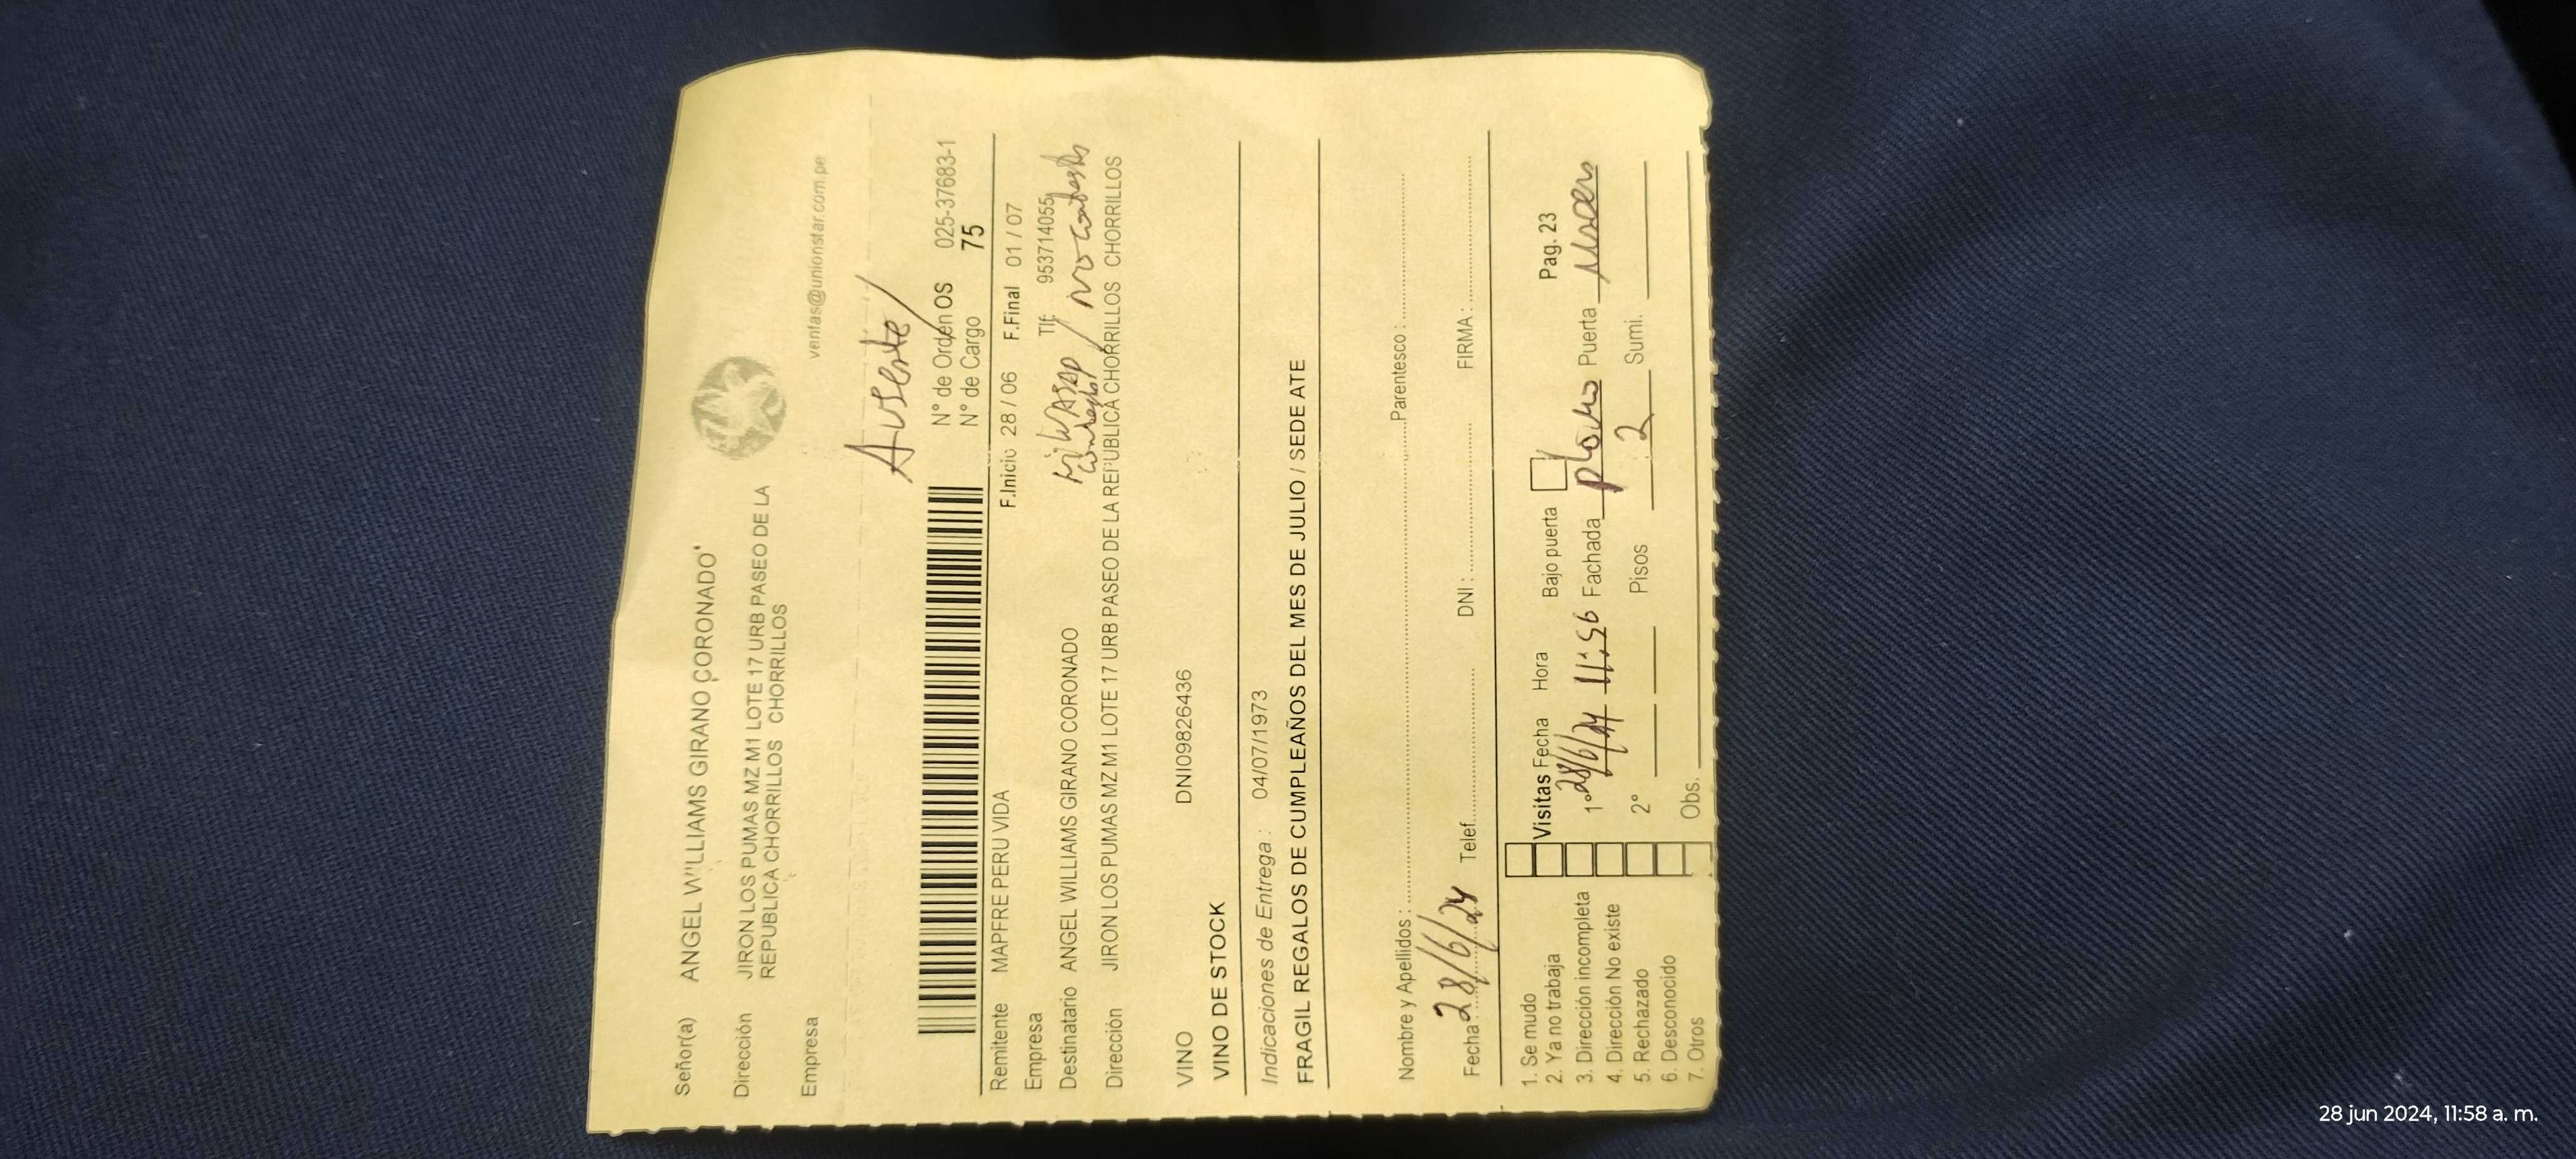 Señor(a) ANGEL WILLIAMS GIRANO CORONADO
Dirección JIRON LOS PUMAS MZ M1 LOTE 17 URB PASEO DE LA
REPUBLICA CHORRILLOS CHORRILLOS
Empresa
ventas@unionstar.com.pe
Ausente
N° de Orden OS 025-37683-1
N° de Cargo 75
Remitente MAPFRE PERU VIDA F.Inicio 28 / 06 F.Final 01 / 07
Empresa Tlf: 953714055
Destinatario ANGEL WILLIAMS GIRANO CORONADO
Dirección JIRON LOS PUMAS MZ M1 LOTE 17 URB PASEO DE LA REPUBLICA CHORRILLOS CHORRILLOS
VINO DNI09826436
VINO DE STOCK
Indicaciones de Entrega : 04/07/1973
FRAGIL REGALOS DE CUMPLEAÑOS DEL MES DE JULIO / SEDE ATE
Nombre y Apellidos : Parentesco :
Fecha 28/6/24 Telef. DNI : FIRMA :
1. Se mudo
2. Ya no trabaja
3. Dirección incompleta
4. Dirección No existe
5. Rechazado
6. Desconocido
7. Otros
Visitas Fecha Hora Bajo puerta Pag. 23
1° 28/6/24 11:56 Fachada plomo Puerta
2° Pisos 2 Sumi.
Obs.
28 jun 2024, 11:58 a. m.